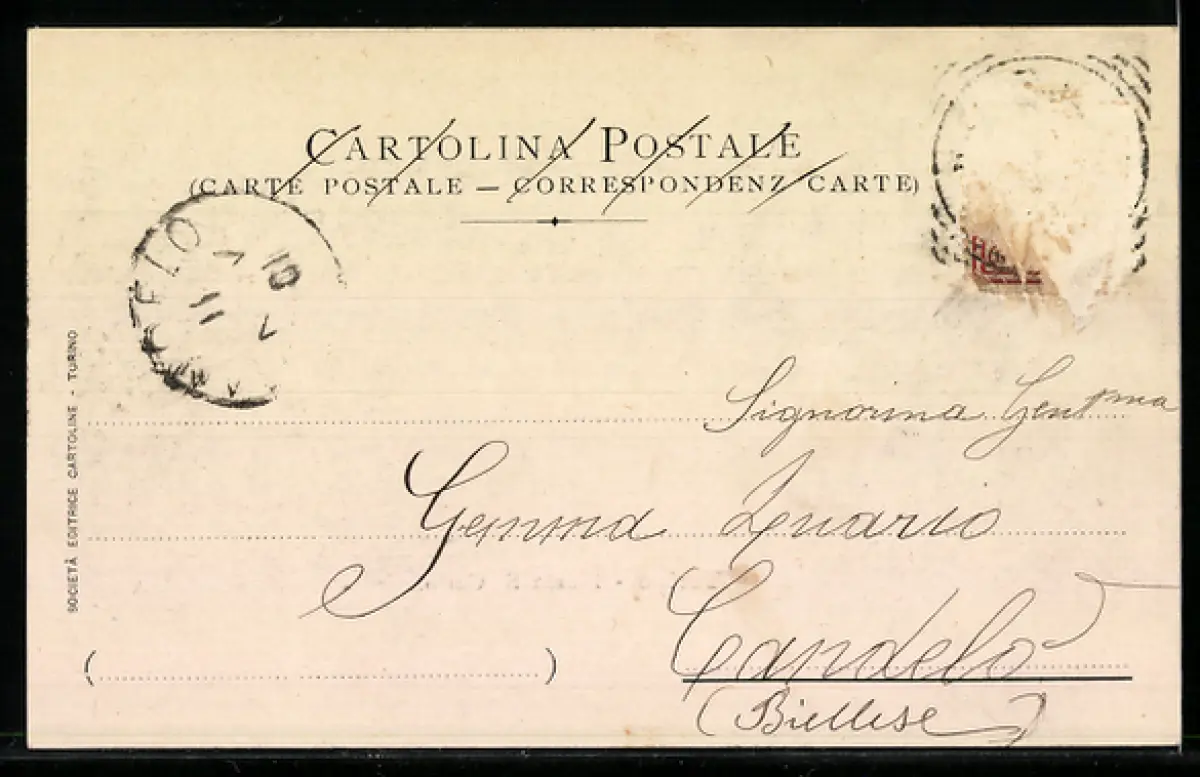 CARTOLINA POSTALE
(CARTE POSTALE — CORRESPONDENZ CARTE)
10
V
11
SOCIETÀ EDITRICE CARTOLINE - TURINO
Signorina Gent.ma
Gemma
Candelo
(Biellese)